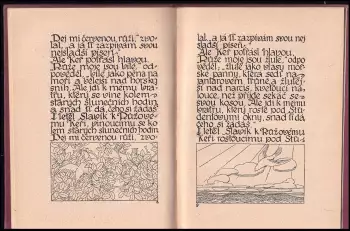 Dej mi červenou růži, zvo-
lal, „a já Ti zazpívám svou
nejsladší píseň."
Ale Keř potřásl hlavou.
„Růže moje jsou bílé," od-
pověděl, „bílé jako pěna na
moři a bělejší nad horský
sníh. Ale jdi k mému bra-
tru, který se vine kolem
starých slunečních hodin,
a snad ti dá, čeho si žádáš."
I letěl Slavík k Růžové-
mu Keři, pnoucímu se ko-
lem starých slunečních hodin.
„Dej mi červenou růži," zvo-
lal, „a já Ti zazpívám svou
nejsladší píseň."
Ale Keř potřásl hlavou.
„Růže moje jsou žluté," odpo-
věděl, „žluté jako vlasy moř-
ské panny, která sedí na
jantarovém trůně, a žlutěj-
ší nad narcis, kvetoucí na
louce, než přijde sekáč se
svou kosou. Ale jdi k mému
bratru, který roste pod Stu-
dentovými okny, snad ti dá
čeho si žádáš."
I letěl Slavík k Růžovému
Keři rostoucímu pod Stu-